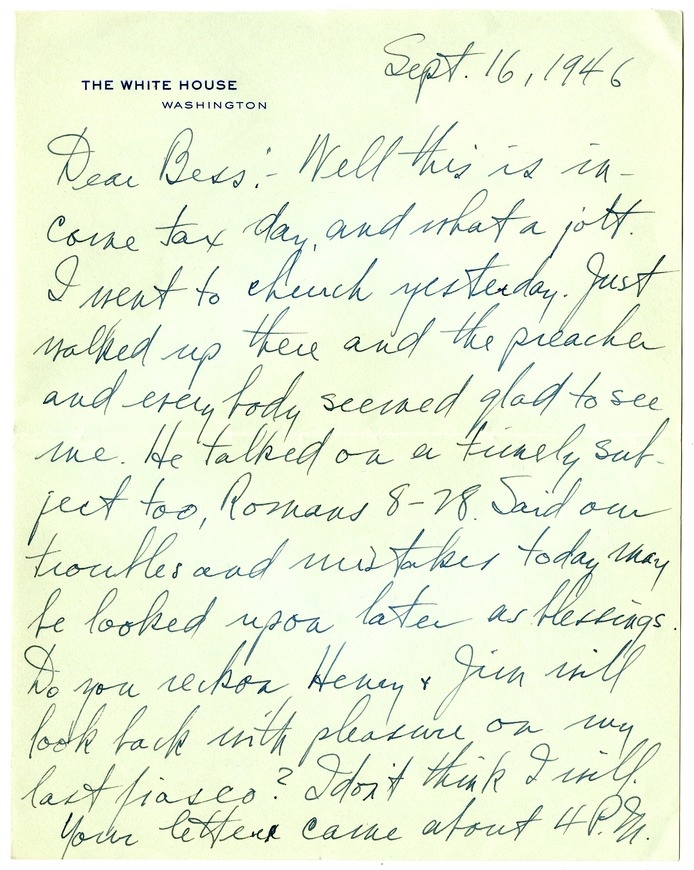 Sept. 16, 1946
THE WHITE HOUSE
WASHINGTON
Dear Bess:- Well this is in-
come tax day, and what a jolt.
I went to church yesterday. Just
walked up there and the preacher
and every body seemed glad to see
me. He talked on a timely sub-
ject too, Romans 8-28. Said our
troubles and mistakes today may
be looked upon later as blessings.
Do you reckon Henry & Jim will
look back with pleasure on my
last fiasco? I don't think I will.
Your letter came about 4 P.M.